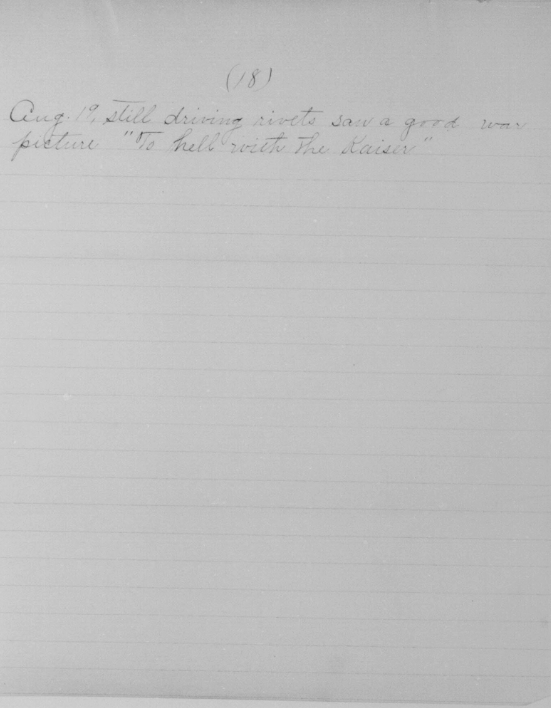 (18)
Aug. 19, still driving rivets saw a good war
picture "To hell with the Kaiser"